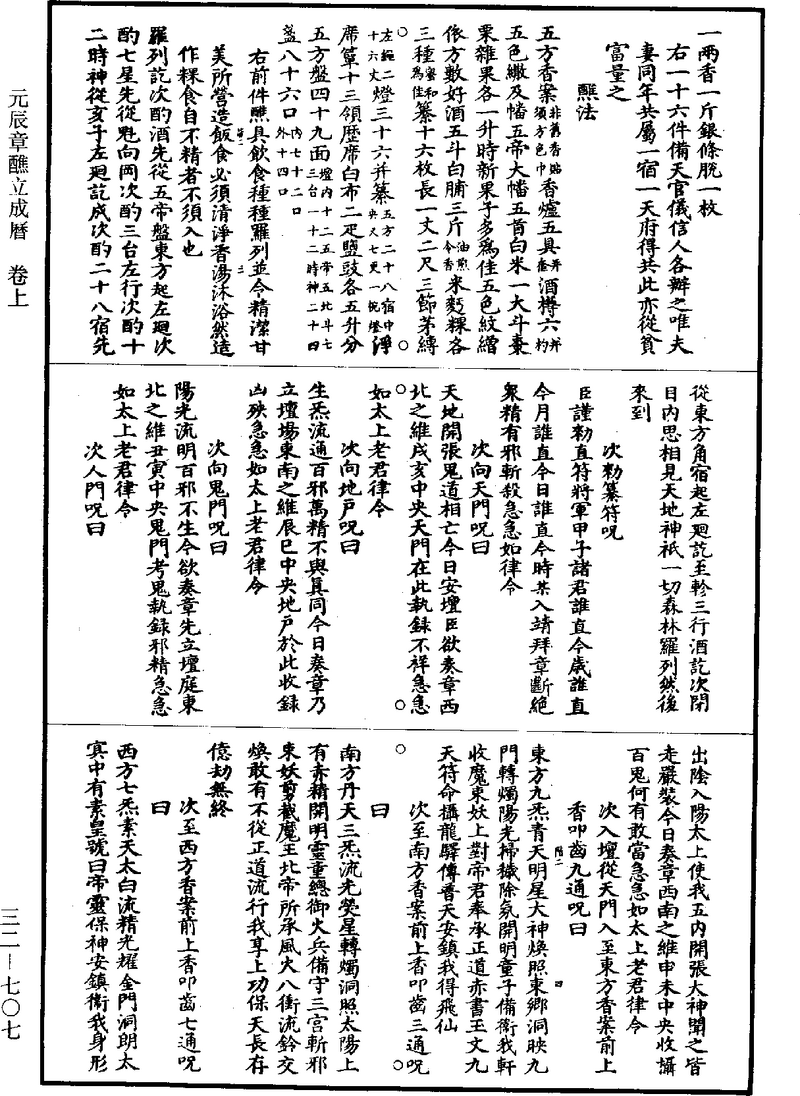 一兩香一斤銀條脫一枚
右一十六件備天官儀信人各辦之唯夫
妻同年共屬一宿一天府得共此亦從貧
富量之
醮法
五方香案須方色巾香爐五具酒樽六并杓
五色繖及幡五帝大幡五首白米一大斗棗
栗雜果各一升時新果子多為佳五色紋繒
依方數好酒五斗白脯三斤油煎令香米麪粿各
三種蜜和為佳纂十六枚長一丈二尺三節茅縛
左經二十六丈燈三十六并纂五方二十八宿中央又七更一椀燈淨
席簟十三領歷席白布二疋鹽豉各五升分
五方盤四十九面壇內十二五帝五北斗七三台一十二時神二十四
盞八十六口內七十二口外十四口
右前件醮具飲食種種羅列並令精潔甘
美所營造飯食必須清淨香湯沐浴然造
作粿食自不精者不須入也
羅列訖次酌酒先從五帝盤東方起左廻次
酌七星先從魁向岡次酌三台左行次酌十
二時神從亥子左廻訖戌次酌二十八宿先
從東方角宿起左廻訖至軫三行酒訖次閉
目內思相見天地神祇一切森林羅列然後
來到
次勑纂符呪
臣謹勑直符將軍甲子諸君誰直今歲誰直
今月誰直今日誰直今時某入靖拜章斷絕
眾精有邪斬殺急急如律令
次向天門呪曰
天地開張鬼道相亡今日安壇臣欲奏章西
北之維戌亥中央天門在此執錄不祥急急
如太上老君律令
次向地戶呪曰
生炁流通百邪萬精不與真同今日奏章乃
立壇場東南之維辰巳中央地戶於此收錄
凶殃急急如太上老君律令
次向鬼門呪曰
陽光流明百邪不生今欲奏章先立壇庭東
北之維丑寅中央鬼門考鬼執錄邪精急急
如太上老君律令
次人門呪曰
出陰入陽太上使我五內開張大神聞之皆
走嚴裝今日奏章西南之維申未中央收攝
百鬼何有敢當急急如太上老君律令
次入壇從天門入至東方香案前上
香叩齒九通呪曰
東方九炁青天明星大神煥照東鄉洞映九
門轉燭陽光掃穢除氛開明童子備衛我軒
收魔束妖上對帝君奉承正道赤書玉文九
天符命攝龍驛傳普天安鎮我得飛仙
次至南方香案前上香叩齒三通呪
曰
南方丹天三炁流光熒星轉燭洞照太陽上
有赤精開明靈童總御火兵備守三宮斬邪
束妖剪截魔王北帝所承風火八衝流鈴交
煥敢有不從正道流行我享上功保天長存
億劫無終
次至西方香案前上香叩齒七通呪
曰
西方七炁素天太白流精光耀金門洞朗太
冥中有素皇號曰帝靈保神安鎮衛我身形
元辰章醮立成曆　卷上
三二—七〇七